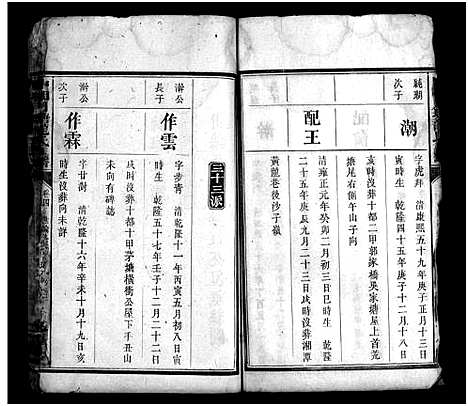 純朝
次子
潮
字虎拜 清康熙五十九年庚子正月十三日
時生 乾隆四十五年庚子十二月十八日
亥時沒葬十都二甲郭家橋吳家塘屋上首荒
塘尾右側午山子向
配王
清雍正元年癸卯二月初三日巳時生 乾隆
二十五年庚辰九月二十三日戌時沒葬湘潭
黃龍巷後沙子嶺
三十三派
澍公
長子
作雲
字步青 清乾隆十一年丙寅五月初八日寅
時生 乾隆五十七年壬子十二月二十二日
寅時沒葬十甲茅塘橫衝公屋下手丑山
未向有碑誌
澍公
次子
作霖
字甘澍 清乾隆十六年辛未十月十九日亥
時生沒葬向未詳